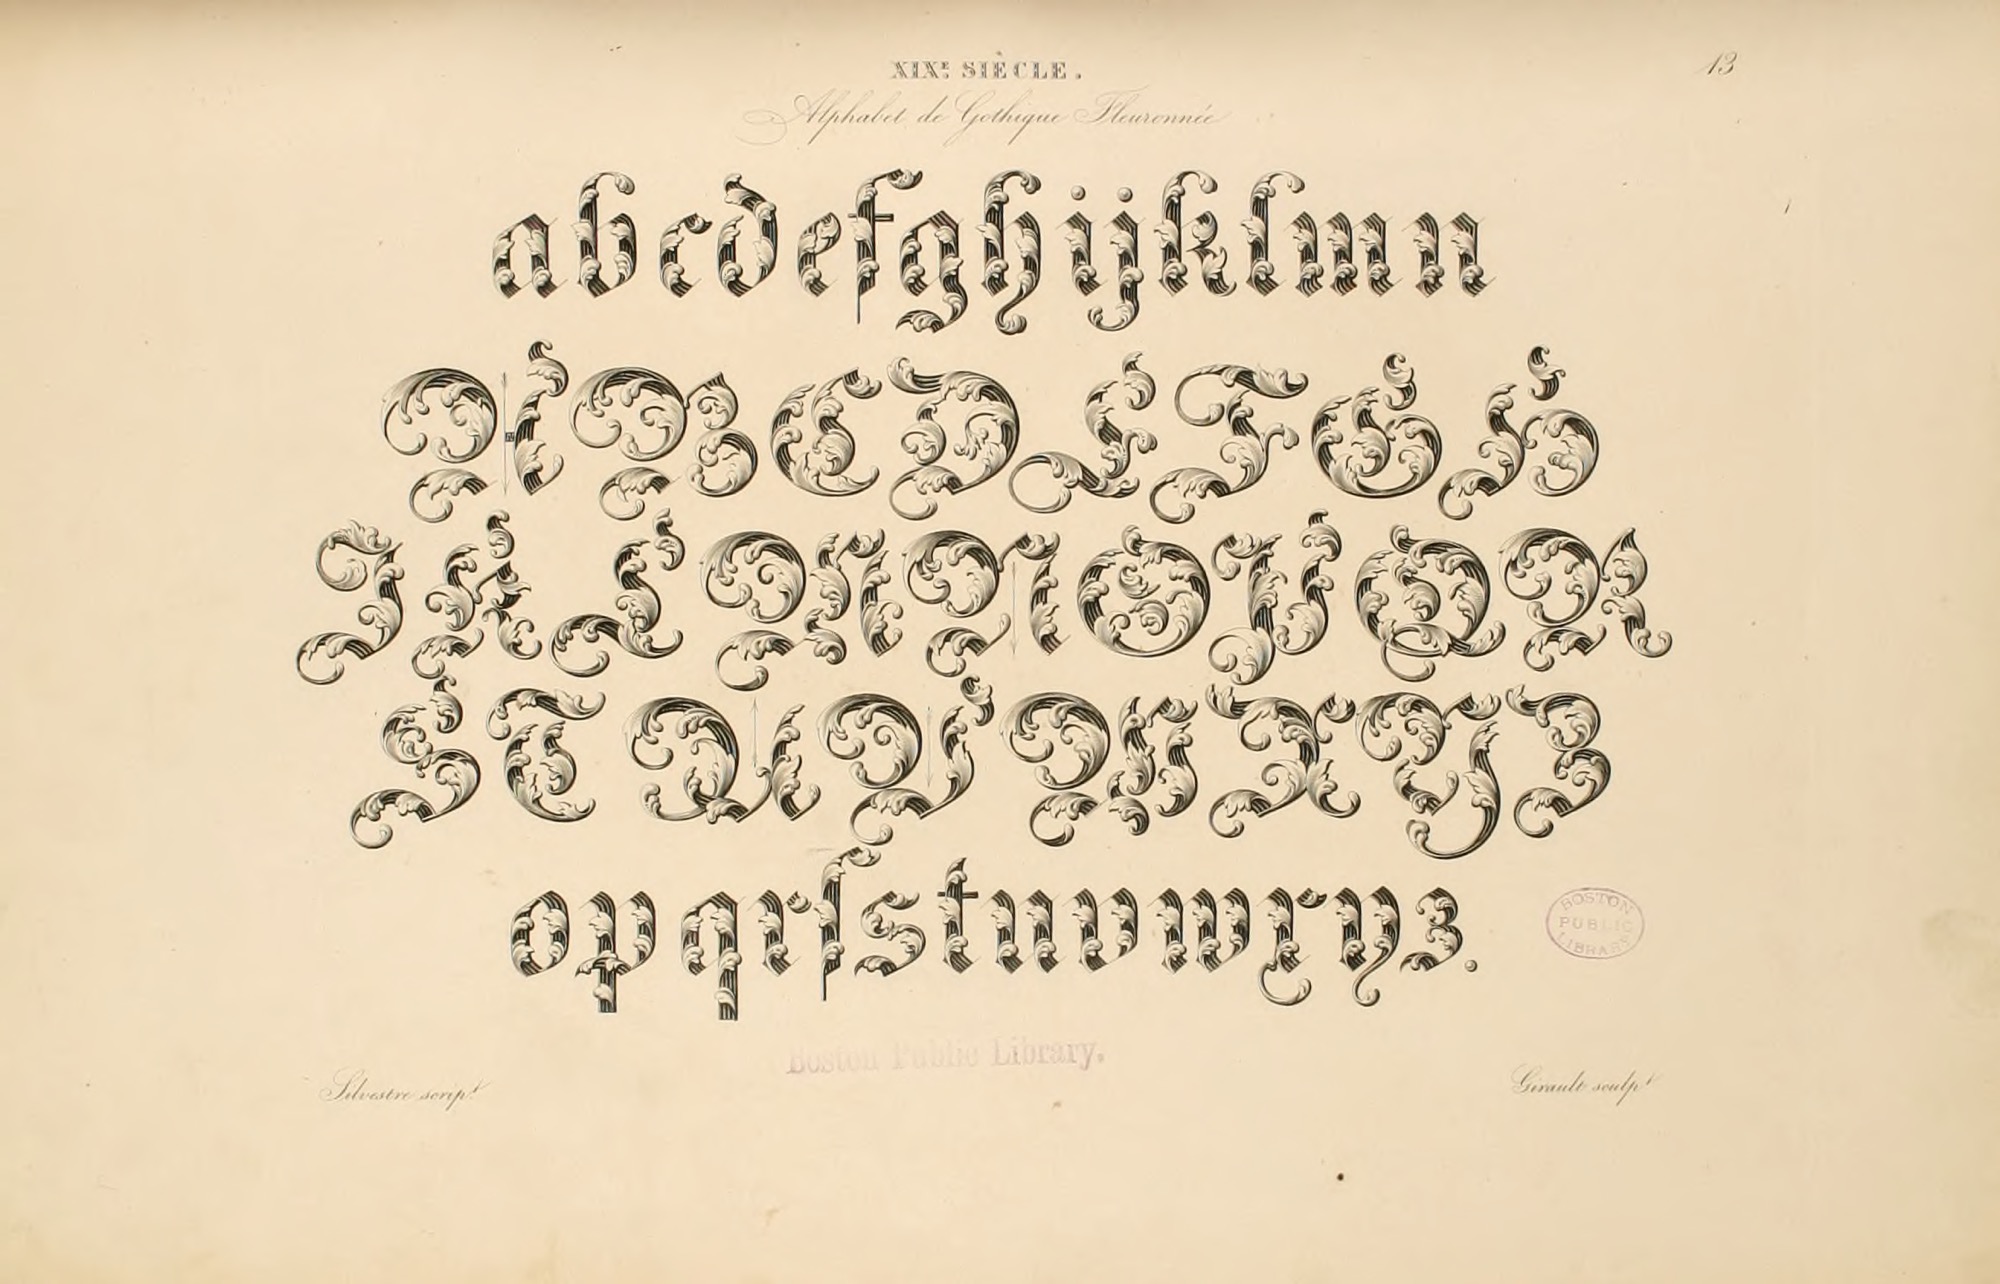 XIXE SIÈCLE.
13
Alphabet de Gothique Fleuronnée
a b c d e f g h i j k l m n
A B C D E F G H
I K L M N O P Q R
S T U V W X Y Z
o p q r ſ s t u v w x y z.
BOSTON
PUBLIC
LIBRARY
Boston Public Library.
Silvestre script.
Girault sculpt